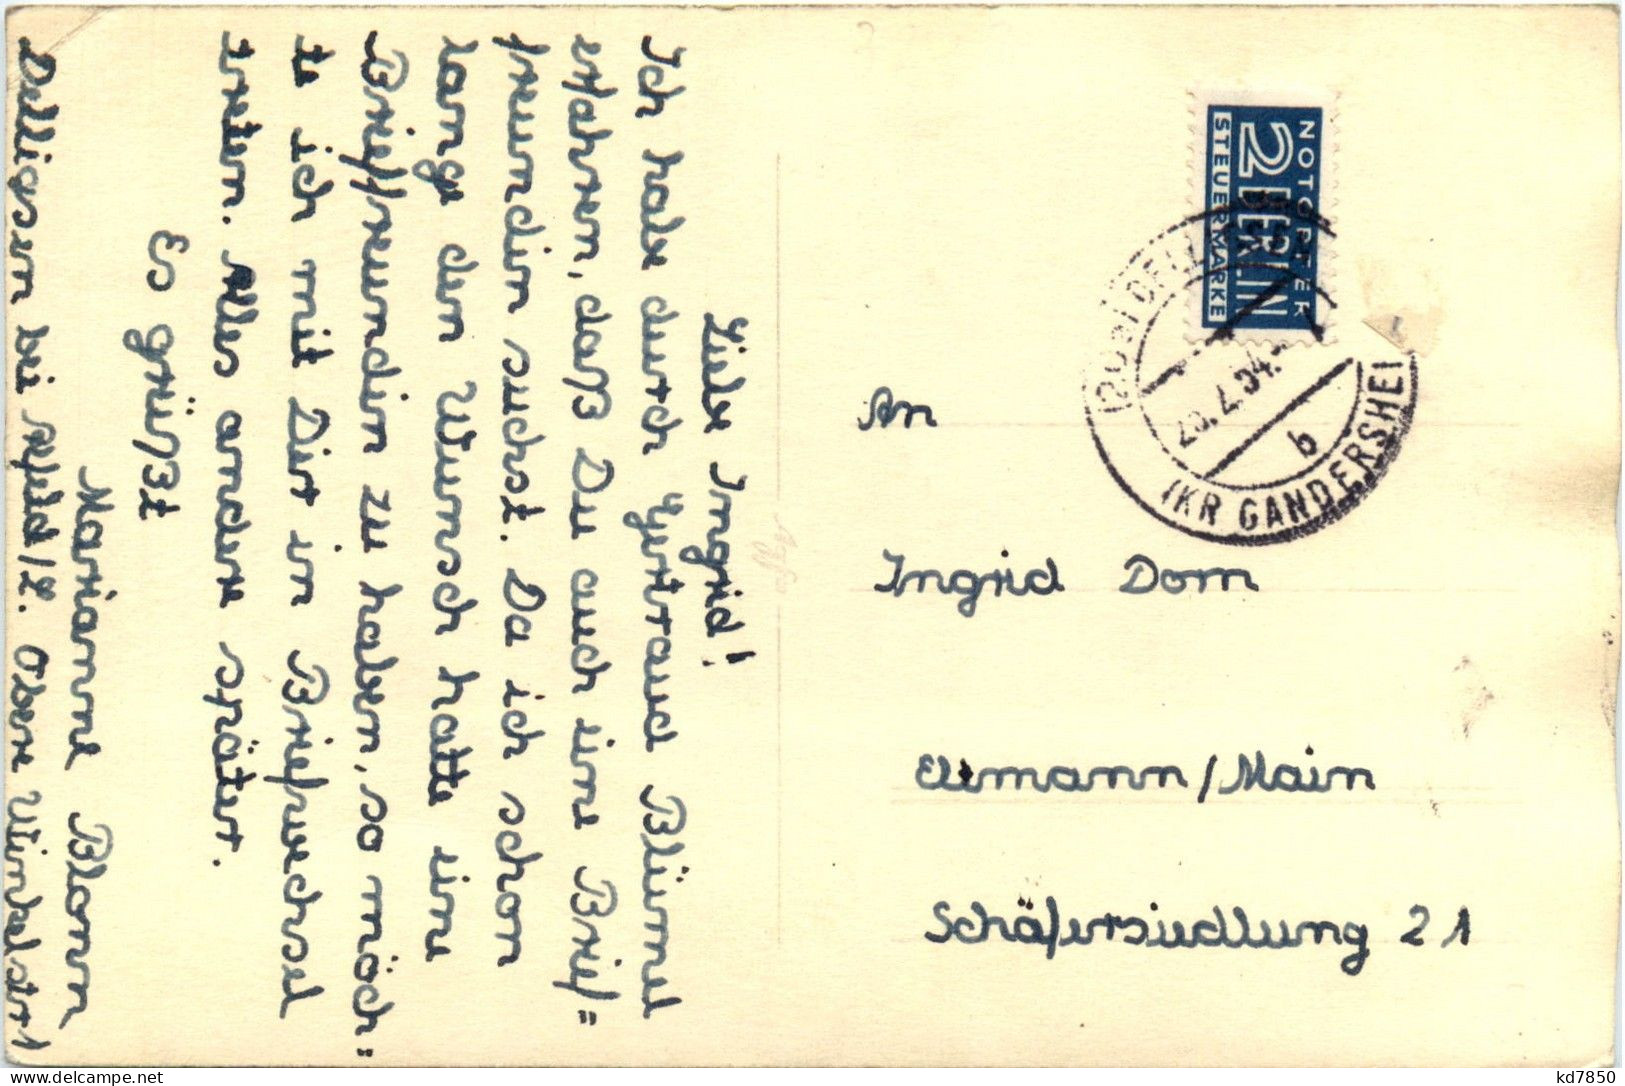 Liebe Ingrid!
Ich habe durch Gertraud Blümel
erfahren, daß Du auch eine Brief=
freundin suchst. Da ich schon
lange den Wunsch hatte eine
Brieffreundin zu haben, so möch=
te ich mit Dir in Briefwechsel
treten. Alles andere später.
Es grüßt
Marianne Blann
Delligsen bei Alfeld/L. Obere Winkelstr 1
NOTOPFER
2 BERLIN
STEUERMARKE
DELL
b
(KR GANDERSHEI
An
Ingrid Dorn
Eltmann/Main
Schäfersiedlung 21
Agfa
kd7850